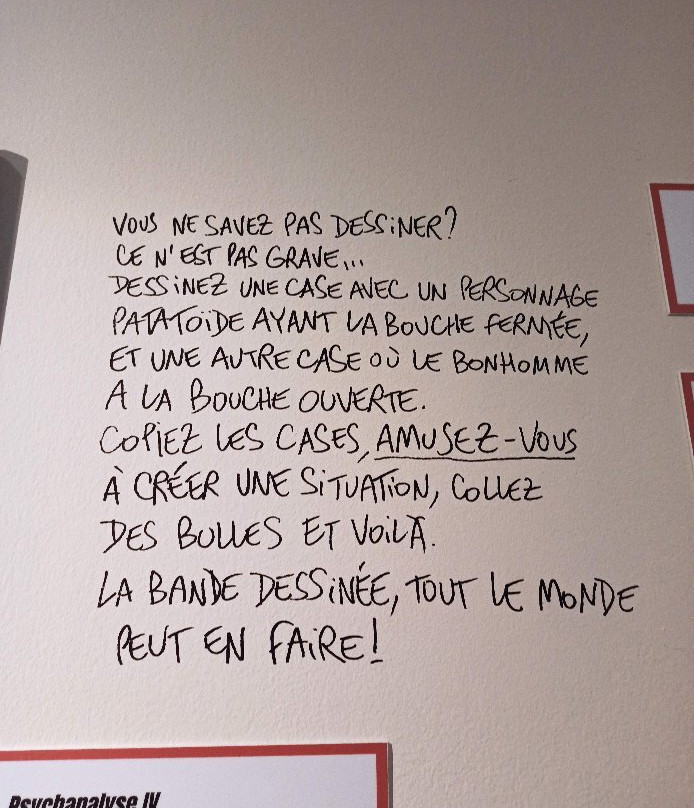 VOUS NE SAVEZ PAS DESSINER?
CE N'EST PAS GRAVE...
DESSINEZ UNE CASE AVEC UN PERSONNAGE
PATATOÏDE AYANT LA BOUCHE FERMÉE,
ET UNE AUTRE CASE OÙ LE BONHOMME
A LA BOUCHE OUVERTE.
COPIEZ LES CASES, AMUSEZ-VOUS
À CRÉER UNE SITUATION, COLLEZ
DES BULLES ET VOILÀ.
LA BANDE DESSINÉE, TOUT LE MONDE
PEUT EN FAIRE!
Psychanalyse IV